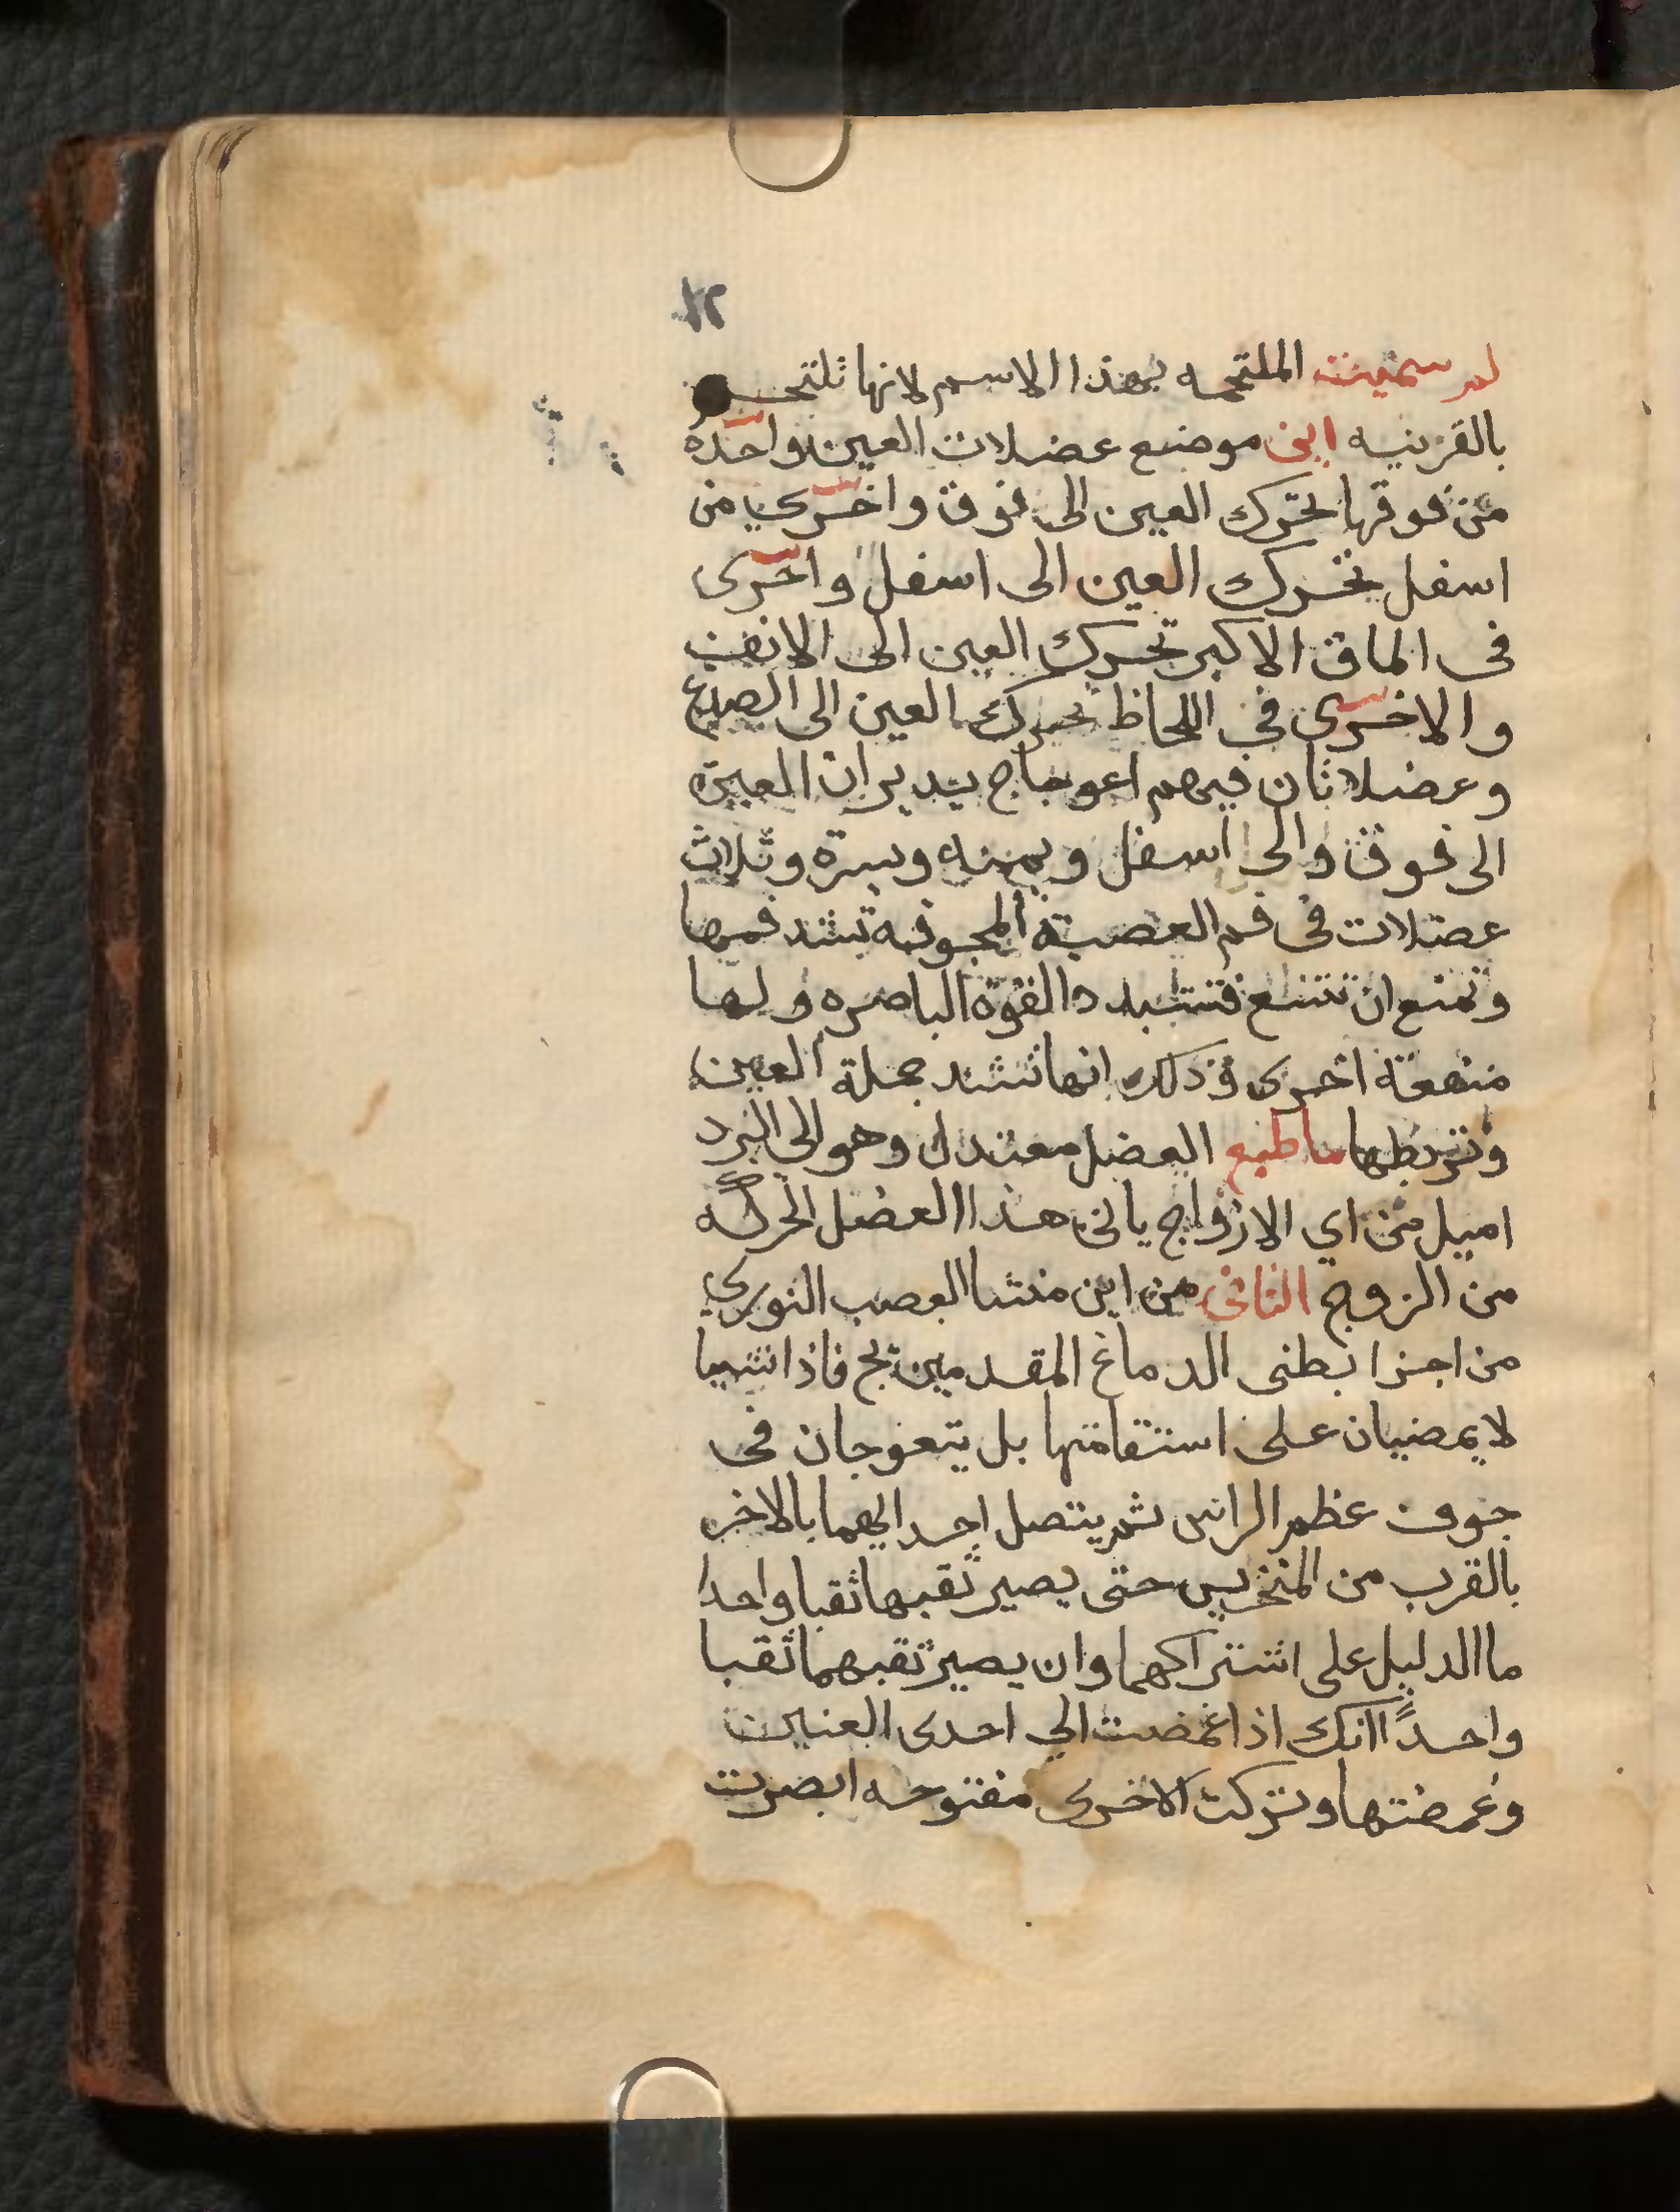 لم سميت الملتحمه بهذا الاسم لانها تلتحم
بالقرنيه اين موضع عضلات العين واحده
من فوقها تحرك العين الى فوق واخرى من
اسفل تحرك العين الى اسفل واخرى
فى الماق الاكبر تحرك العين الى الانف
والاخرى في اللحاظ تحرك العين الى الصدغ
وعضلاتان فيهم اعوجاج يديران العين
الى فوق والى اسفل ويمنه ويسرة وثلاث
عضلات فى فم العصبة المجوفه تشد فمها
وتمنع ان تتسع فتتبدد القوة الباصره ولها
منفعة اخرى وذلك انها تشد جملة العين
وتربطها ما طبع العضل معتدل وهو الى البرد
اميل من اي الازواج ياتى هذا العضل الحركه
من الزوج الثانى من اين منشا العصب النوري
من اجزا بطنى الدماغ المقدمين فاذا انتهيا
لا يمضيان على استقامتها بل يتعوجان فى
جوف عظم الراس ثم يتصل احدايهما بالاخر
بالقرب من المنخرين حتى يصير ثقبها ثقبا واحدا
ما الدليل على اشتراكهما وان يصير ثقبهما ثقبا
واحدًا انك اذا غمضت الي احدى العنين
وغمضتها وتركت الاخرى مفتوحه ابصرت